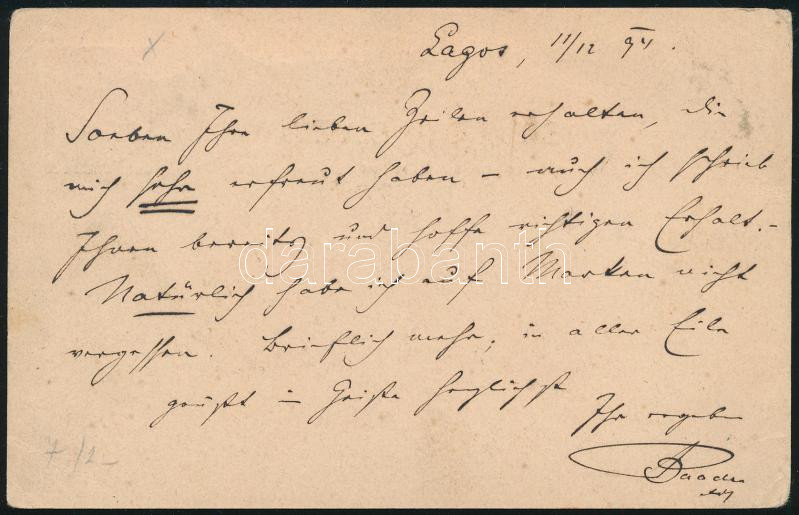 Lagos, 11/12 94.
Soeben Ihre lieben Zeilen erhalten, die
mich sehr erfreut haben – auch ich schrieb
Ihnen bereits und hoffe richtigen Erhalt.–
darabanth
Natürlich habe ich auf Marken nicht
vergessen. Brieflich mehr, in aller Eile
grüßt im Geiste herzlichst
Ihr ergeben
7/2-